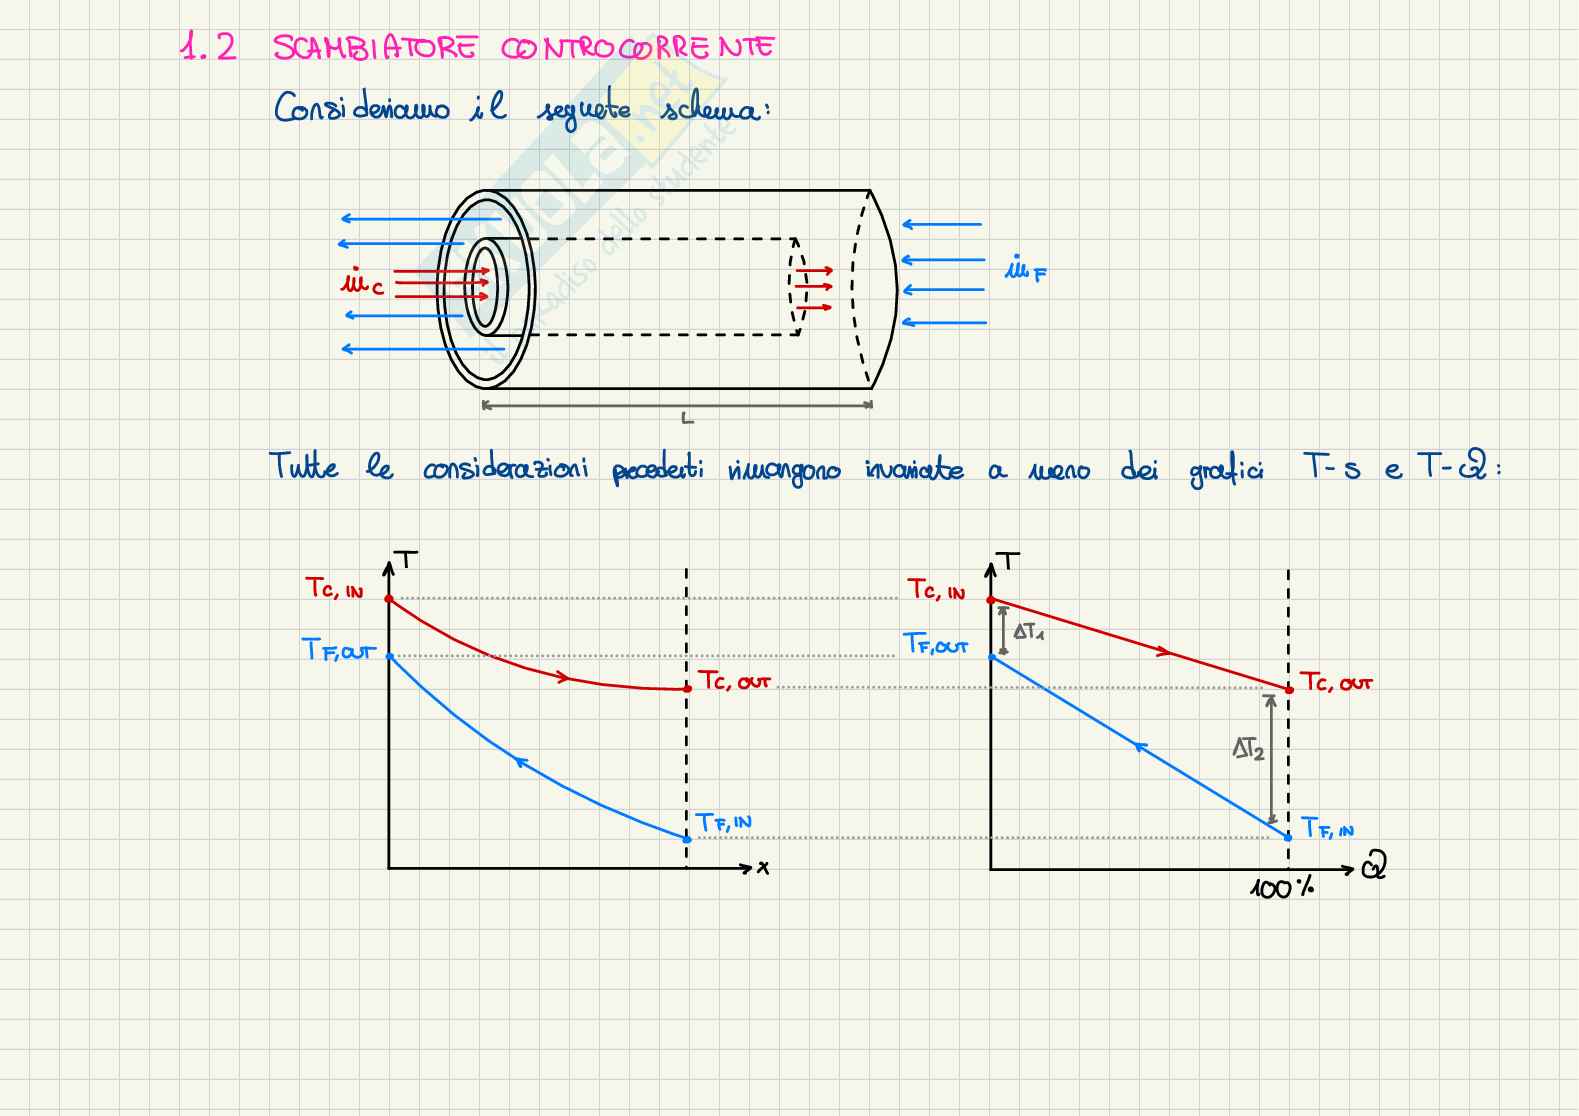 1.2 SCAMBIATORE CONTROCORRENTE
Consideriamo il seguete schema:
ṁc
ṁF
L
Tutte le considerazioni precedenti rimangono invariate a meno dei grafici T-s e T-Q:
T
Tc, IN
TF, OUT
Tc, OUT
TF, IN
x
T
Tc, IN
ΔT1
TF, OUT
Tc, OUT
ΔT2
TF, IN
Q
100%
.net
dello studente